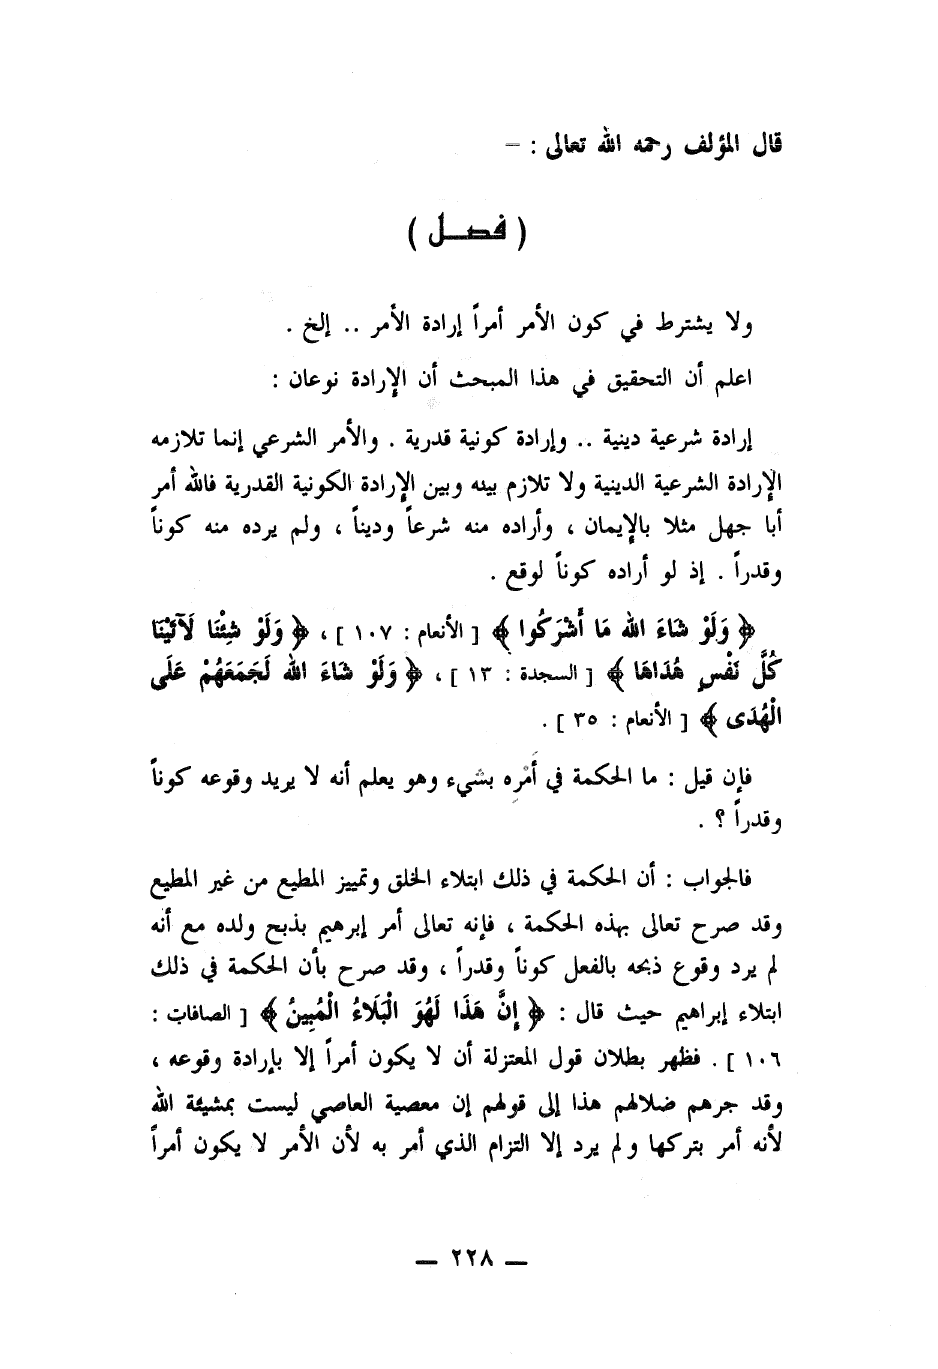 قال المؤلف رحمه الله تعالى : –
( فصــل )
ولا يشترط في كون الأمر أمراً إرادة الأمر .. إلخ .
اعلم أن التحقيق في هذا المبحث أن الإرادة نوعان :
إرادة شرعية دينية .. وإرادة كونية قدرية . والأمر الشرعي إنما تلازمه
الإرادة الشرعية الدينية ولا تلازم بينه وبين الإرادة الكونية القدرية فالله أمر
أبا جهل مثلا بالإيمان ، وأراده منه شرعاً وديناً ، ولم يرده منه كوناً
وقدراً . إذ لو أراده كوناً لوقع .
﴿ وَلَوْ شَاءَ الله مَا أَشْرَكُوا ﴾ [ الأنعام : ١٠٧ ] ، ﴿ وَلَوْ شِئْنَا لَآتَيْنَا
كُلَّ نَفْسٍ هُدَاهَا ﴾ [ السجدة : ١٣ ] ، ﴿ وَلَوْ شَاءَ الله لَجَمَعَهُمْ عَلَى
الْهُدَى ﴾ [ الأنعام : ٣٥ ] .
فإن قيل : ما الحكمة في أمْره بشيء وهو يعلم أنه لا يريد وقوعه كوناً
وقدراً ؟ .
فالجواب : أن الحكمة في ذلك ابتلاء الخلق وتمييز المطيع من غير المطيع
وقد صرح تعالى بهذه الحكمة ، فإنه تعالى أمر إبرهيم بذبح ولده مع أنه
لم يرد وقوع ذبحه بالفعل كوناً وقدراً ، وقد صرح بأن الحكمة في ذلك
ابتلاء إبراهيم حيث قال : ﴿ إِنَّ هَذَا لَهُوَ الْبَلَاءُ الْمُبِينُ ﴾ [ الصافات :
١٠٦ ] . فظهر بطلان قول المعتزلة أن لا يكون أمراً إلا بإرادة وقوعه ،
وقد جرهم ضلالهم هذا إلى قولهم إن معصية العاصي ليست بمشيئة الله
لأنه أمر بتركها ولم يرد إلا التزام الذي أمر به لأن الأمر لا يكون أمراً
— ٢٢٨ —